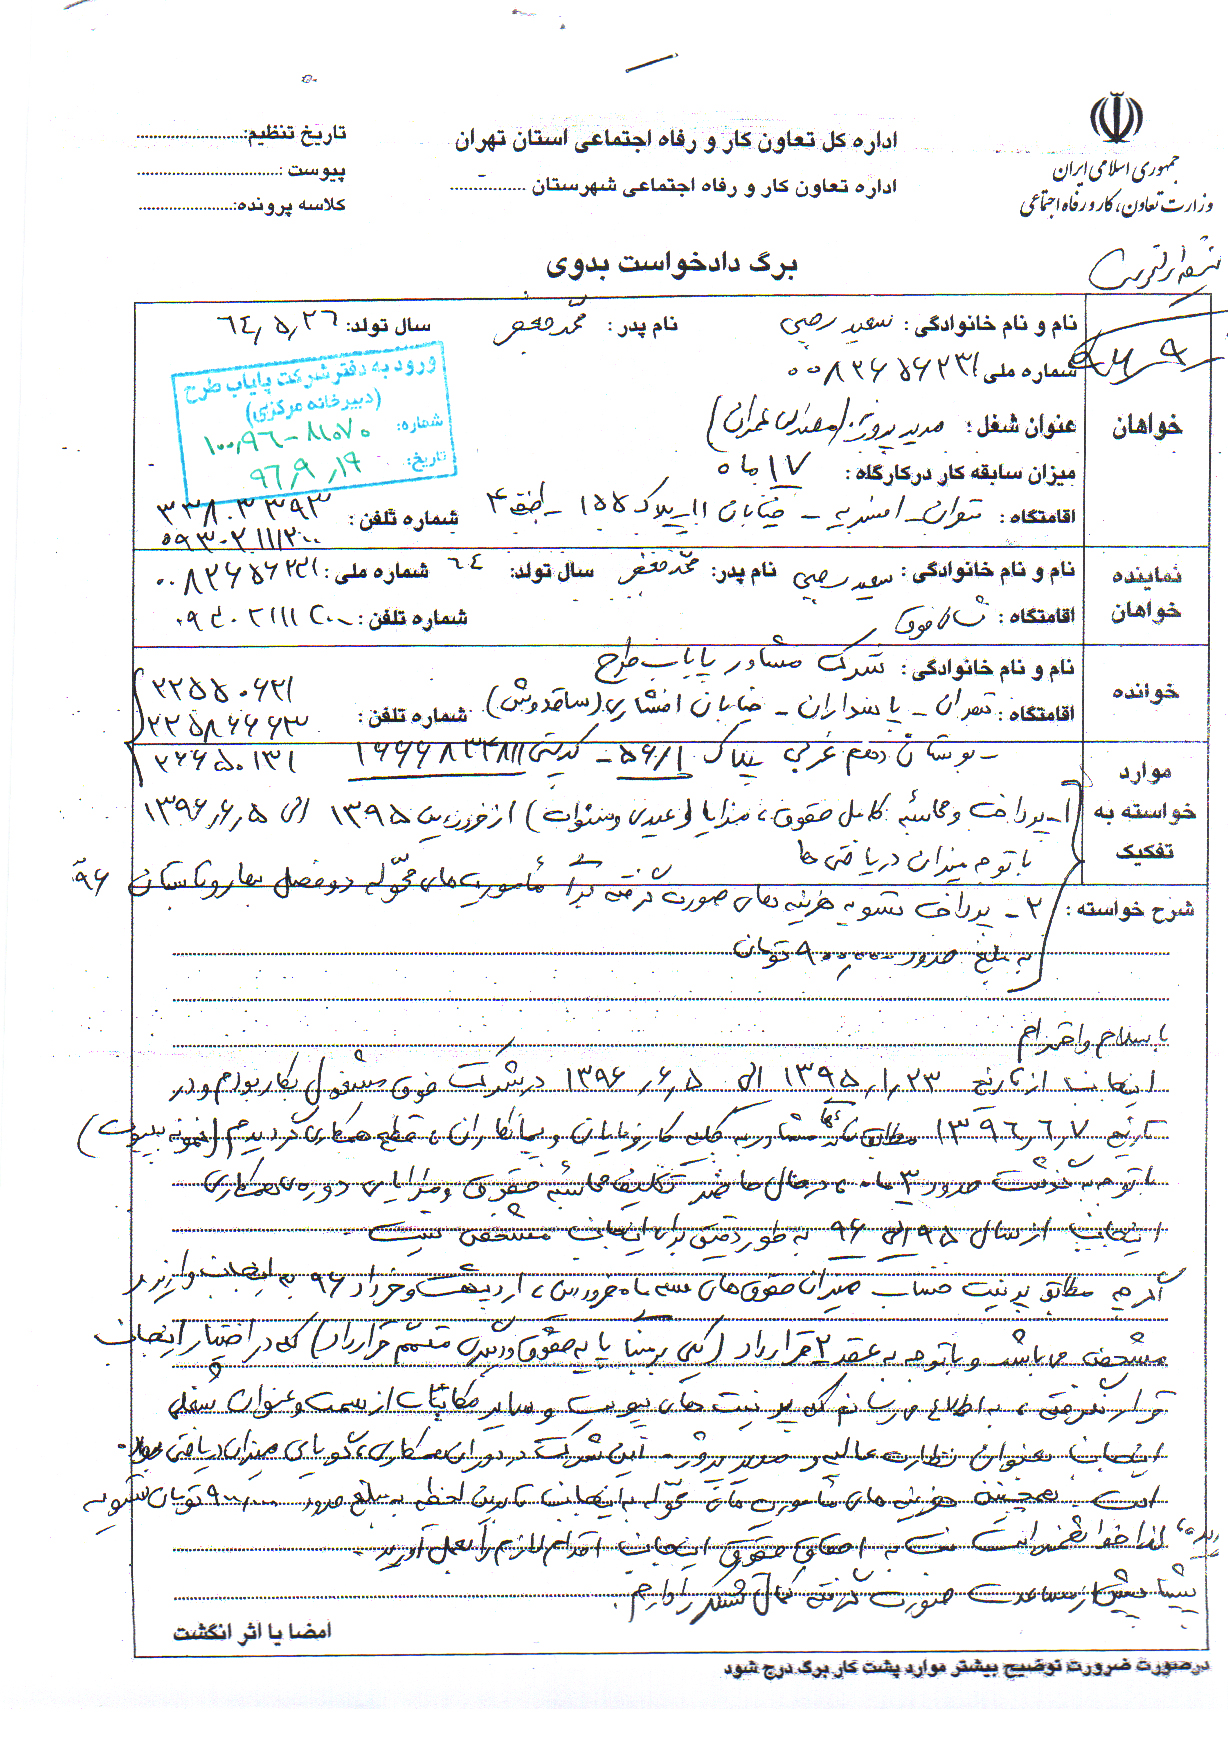 جمهوری اسلامی ایران
وزارت تعاون، کار و رفاه اجتماعی
اداره کل تعاون کار و رفاه اجتماعی استان تهران
اداره تعاون کار و رفاه اجتماعی شهرستان ..............
تاریخ تنظیم:........................
پیوست :................................
کلاسه پرونده:........................
برگ دادخواست بدوی
خواهان
نام و نام خانوادگی : سعید رضی نام پدر : محمد جعفر سال تولد: ۶۴٫۵٫۲۶
شماره ملی
عنوان شغل : مدیر پروژه (مهندس عمران)
میزان سابقه کار درکارگاه : ۱۷ ماه
اقامتگاه : تهران - افسریه - خیابان ۱۱ - پلاک ۱۵۵ - طبقه ۴ شماره تلفن : ۳۳۸۰۳۳۹۳
۰۹۳۰۲۱۱۱۲۰۰
ورود به دفتر شرکت پایاب طرح
(دبیرخانه مرکزی)
شماره: ۱۰۰٫۹۶-۸۱۰۷۰
تاریخ: ۹۶٫۹٫۱۹
نماینده خواهان
نام و نام خانوادگی : سعید رضی نام پدر: محمد جعفر سال تولد: ۶۴ شماره ملی :
اقامتگاه : نشانی فوق شماره تلفن : ۰۹۳۰۲۱۱۱۲۰۰
خوانده
نام و نام خانوادگی : شرکت مشاور پایاب طرح
اقامتگاه : تهران - پاسداران - خیابان افشاری (ساقدوش) شماره تلفن : ۲۲۵۵۰۶۲۱
۲۲۵۸۶۶۶۳
- بوستان دهم غربی پلاک ۵۶/۱ - کدپستی ۱۶۶۶۸۳۴۸۱۱ ۲۶۶۵۰۱۳۱
موارد خواسته به تفکیک
۱- پرداخت و محاسبه کامل حقوق، مزایا (عیدی و سنوات) از فروردین ۱۳۹۵ الی ۱۳۹۶٫۶٫۵
با توجه میزان دریافتی ها
شرح خواسته : ۲- پرداخت تسویه هزینه های صورت گرفته برای مأموریت های محوله دو فصل بهار و تابستان ۹۶
به مبلغ حدود ۹۰۰٫۰۰۰ تومان
با سلام و احترام
اینجانب از تاریخ ۱۳۹۵٫۱٫۲۳ الی ۱۳۹۶٫۶٫۵ در شرکت فوق مشغول بکار بودم و در
تاریخ ۱۳۹۶٫۶٫۷ مطابق نامه مشاور به کلیه کارفرمایان و پیمانکاران، قطع همکاری گردیدم (نمونه پیوست)
با توجه به گذشت حدود ۳ ماه، در حال حاضر تکلیف محاسبه حقوق و مزایای دوره ی همکاری
اینجانب از سال ۹۵ الی ۹۶ به طور دقیق برای اینجانب مشخص نیست.
اگرچه مطابق پرینت حساب میزان حقوق های سه ماه فروردین، اردیبهشت و خرداد ۹۶ به اینجانب واریز
مشخص می باشد و با توجه به عقد ۲ قرارداد (یکی بر مبنا پایه حقوق و دیگری متمم قرارداد) که در اختیار اینجانب
قرار نگرفته، به اطلاع می رسانم که پرینت های پیوست و سایر مکاتبات از سمت و عنوان شغلی
اینجانب بعنوان نظارت عالیه و مدیر پروژه این شرکت در دوران همکاری، گویای میزان دریافتی
است. همچنین هزینه های مأموریت های محوله به اینجانب تا این لحظه به مبلغ حدود ۹۰۰٫۰۰۰ تومان تسویه
لذا خواهشمند است نسبت به احقاق حقوق اینجانب اقدام لازم را بعمل آورید.
پیشاپیش از مساعدت صورت گرفته کمال تشکر را دارم.
امضا یا اثر انگشت
درصورت ضرورت توضیح بیشتر موارد پشت کار برگ درج شود